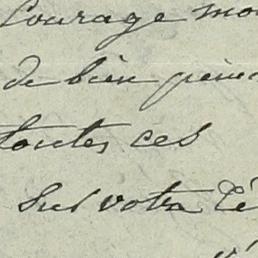 Courage mo
de bien peine
toutes ces
sur votre Té